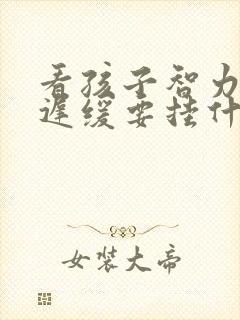 看孩子智力
迟缓要挂什
女装大帝